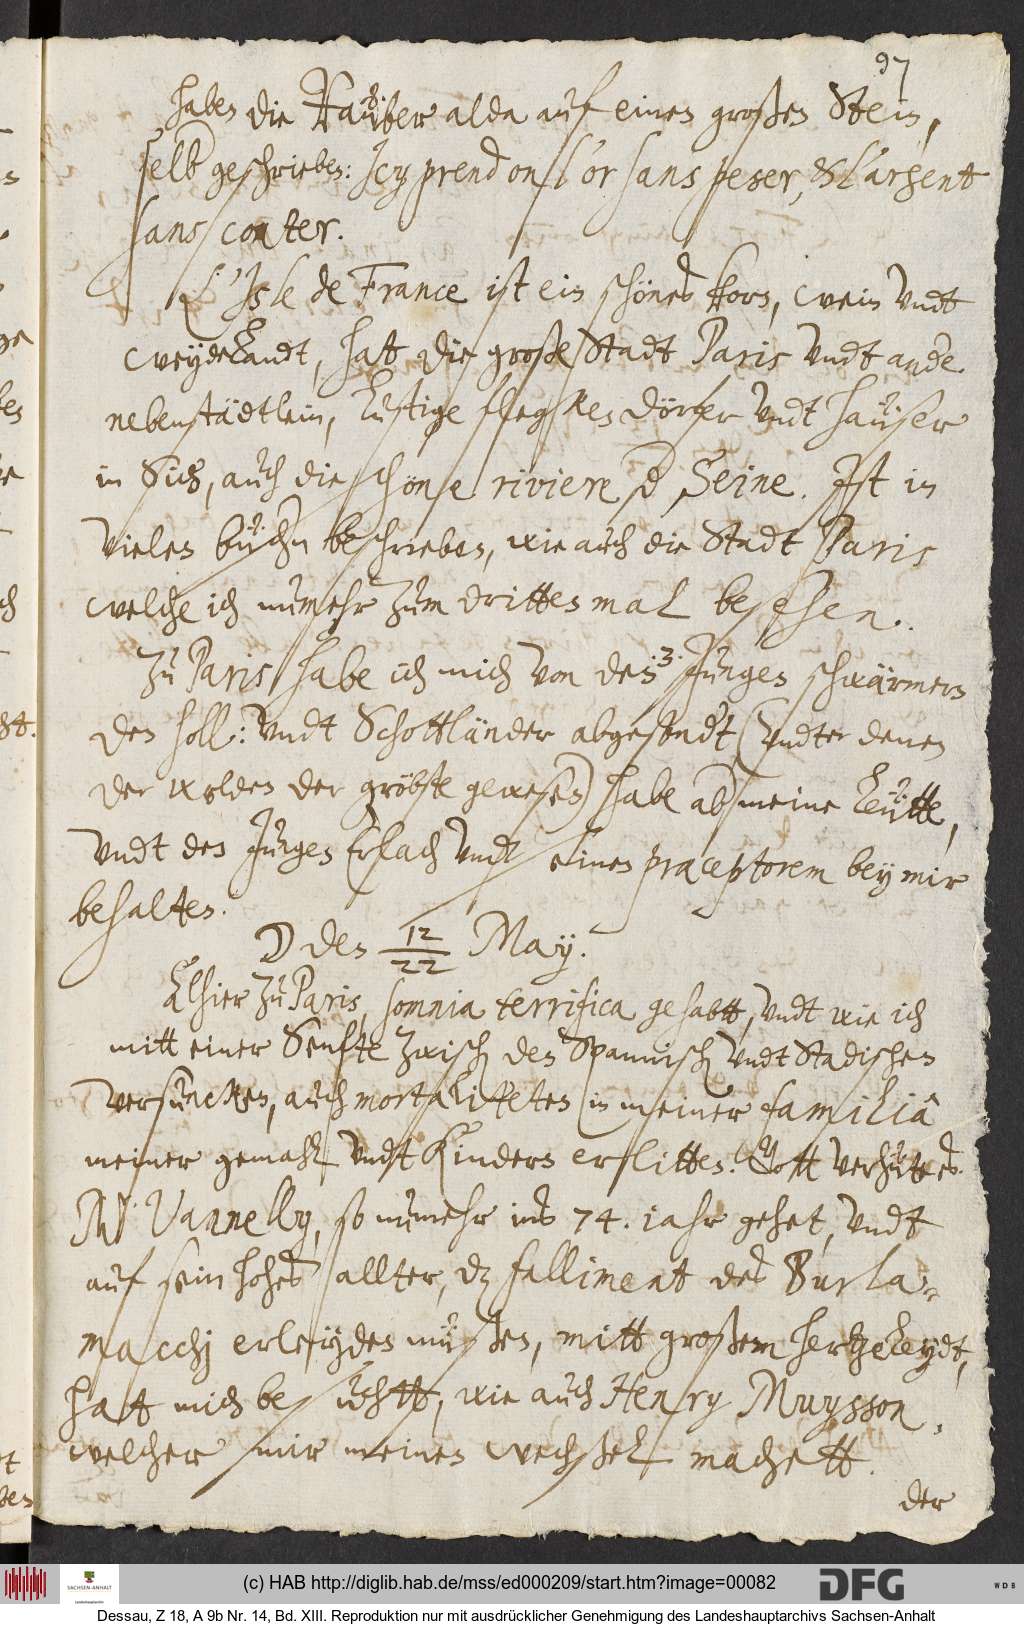 97
haben die Räuber alda auf einen großen Stein,
selb geschrieben: Icy prend on l'or sans peser, & L'argent
sans conter.
L'Isle de France ist ein schönes korn, wein undt
weydeLandt, hatt die große Stadt Paris undt ande
nebenstädtlein, Lustige flegken dörfer undt haüser
in Sich, auch die schöne riviere d Seine. Ist in
vielen büchern beschrieben, wie auch die Stadt Paris
welche ich numehr zum dritten mal besehen.
Zu Paris habe ich mich von den .3. Jungen schwärmern
den holl: undt Schottländer abgesondert (undter denen
der wolden der gröbste gewesen) habe ab meine Leütte,
undt den Jungen Erlach undt seinen præceptorem bey mir
behalten.
D den 12/22 May.
Alhier zu Paris, somnia terrifica gehabtt, undt wie ich
mitt einer Senfte zwisch den Spannisch undt Stadischen
versuncken, auch mortaliteten in meiner familiâ
meiner gemahl undt Kindern erlitten. Gott verhütt es.
Vannelly, so numehr ins 74. iahr gehet, undt
auf sein hohes allter, dz falliment des Burla-
macchj erleiden müßen, mitt großem hertzeLeydt,
hatt mich besuchtt, wie auch Henry Muysson,
welcher mir meinen wechßel machett.
der
(c) HAB http://diglib.hab.de/mss/ed000209/start.htm?image=00082
SACHSEN-ANHALT
Landeshauptarchiv
DFG
WDB
Dessau, Z 18, A 9b Nr. 14, Bd. XIII. Reproduktion nur mit ausdrücklicher Genehmigung des Landeshauptarchivs Sachsen-Anhalt